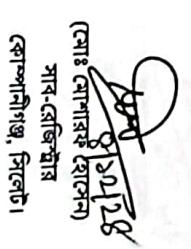 ৪/১২/২৪
(মোঃ মোশারফ হোসেন)
সাব-রেজিস্ট্রার
কোম্পানিগঞ্জ, সিলেট।